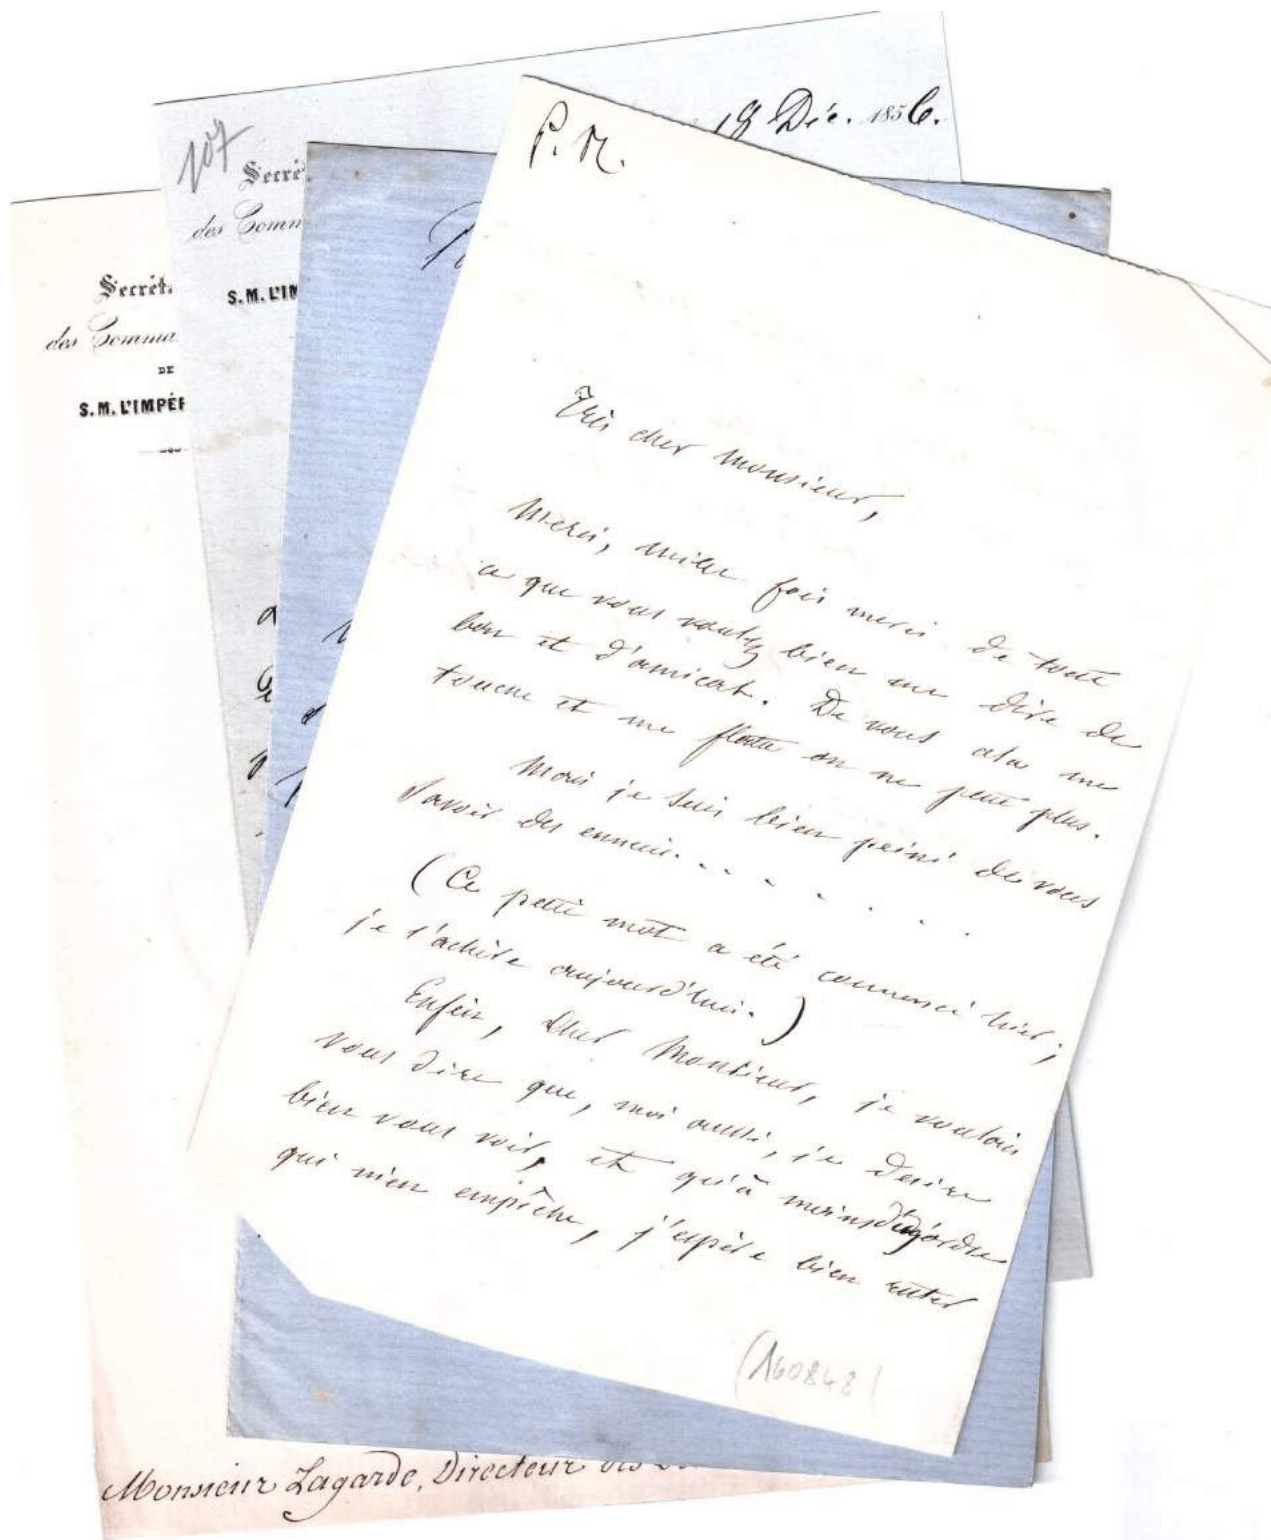 18 Déc. 1856.
107
Secré
des Comm
S.M. L'IM
Secrét
des Comma
DE
S.M. L'IMPÉR
P. M.
Très cher Monsieur,
Merci, mille fois merci de tout
ce que vous voulez bien me dire de
bon et d'amical. De vous cela me
touche et me flatte on ne peut plus.
Mais je suis bien peiné de vous
savoir des ennuis. . . . . . .
(Ce petit mot a été commencé hier;
je l'achève aujourd'hui.)
Enfin, cher Monsieur, je voulais
vous dire que, moi aussi, je désire
bien vous voir, et qu'à moins d'ordre
qui m'en empêche, j'espère bien
(160848)
Monsieur Lagarde, Directeur des